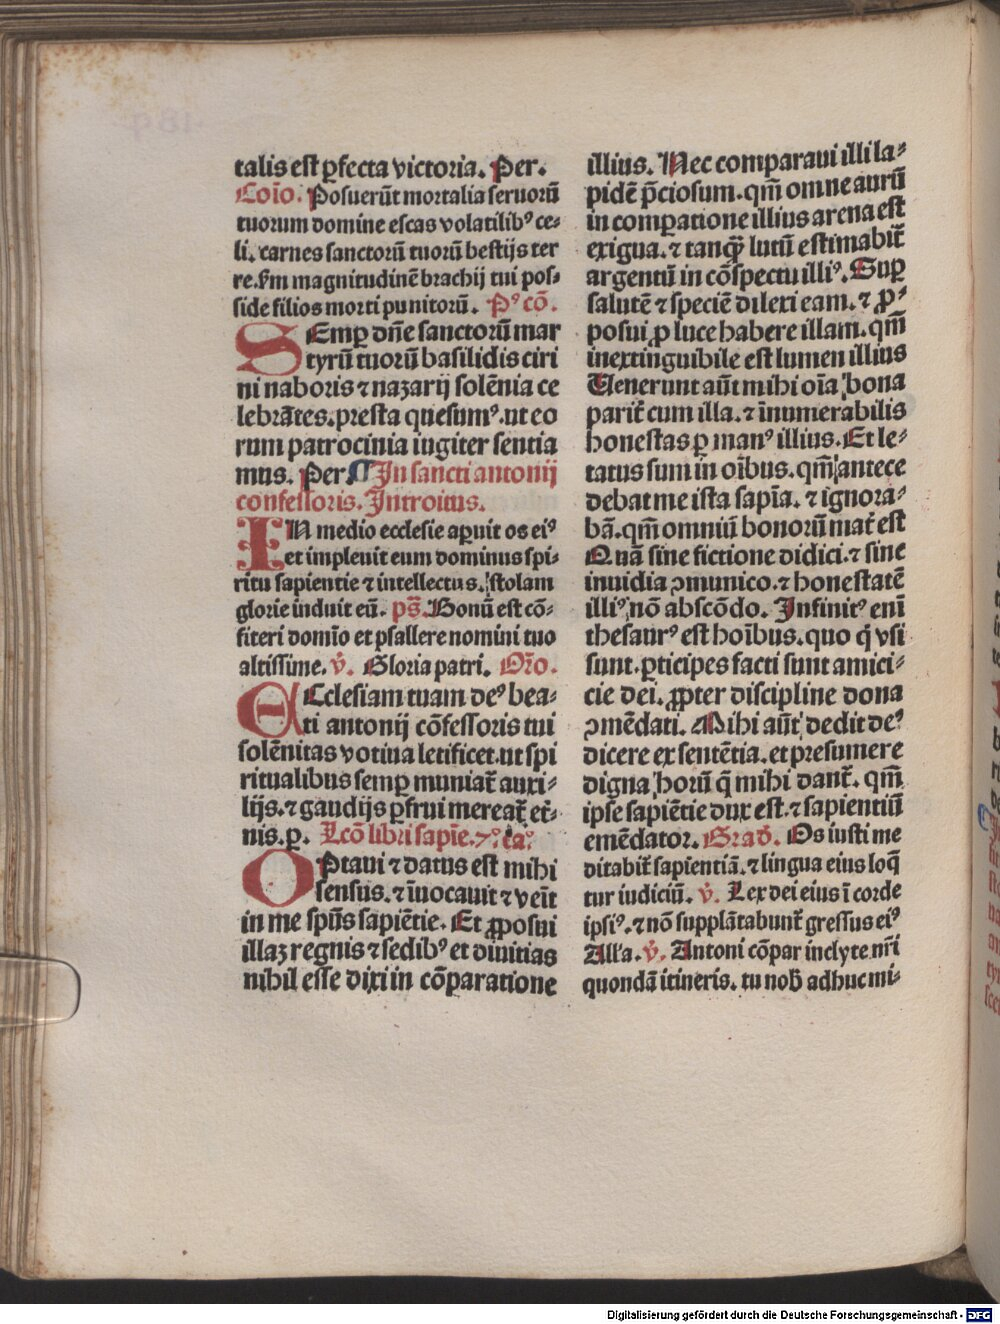 talis est ꝑfecta victoria. Per.
Coīo. Posuerūt mortalia seruorū
tuorum domine escas volatilibꝰ ce-
li. carnes sanctorū tuorū bestijs ter
re. ẜm magnitudinē brachij tui pos-
side filios morti punitorū. Pꝰ cō.
SEmꝑ dn̄e sanctorū mar
tyrū tuorū basilidis ciri
ni naboris ⁊ nazarij solēnia ce
lebrātes. presta quesumꝰ. ut eo
rum patrocinia iugiter sentia
mus. Per. ¶ In sancti antonij
confessoris. Introitus.
IN medio ecclesie aꝑuit os eiꝰ
et impleuit eum dominus spi-
ritu sapientie ⁊ intellectus. stolam
glorie induit eū. ps̄. Bonū est cō-
fiteri domīo et psallere nomini tuo
altissime. v̄. Gloria patri. Or̄o.
ECclesiam tuam deꝰ bea-
ti antonij cōfessoris tui
solēnitas votiua letificet. ut spi
ritualibus semꝑ muniat᷑ auxi-
lijs. ⁊ gaudijs ꝑfrui mereat᷑ et̄-
nis. ꝑ. Lcō libri sapīe. ⁊ꝰ. ca?
OPtaui ⁊ datus est mihi
sensus. ⁊ īuocauit ⁊ veīt
in me spūs sapiētie. Et ꝓposui
illaz regnis ⁊ sedibꝰ et diuitias
nihil esse dixi in cōparatione
illius. Nec comparaui illi la-
pidē p̄ciosum. qm̄ omne aurū
in comꝑatione illius arena est
exigua. ⁊ tanqꝫ lutū estimabit᷑
argentū in cōspectu illiꝰ. Suꝑ
salutē ⁊ speciē dilexi eam. ⁊ ꝓ-
posui ꝓ luce habere illam. qm̄
inextinguibile est lumen illius
Uenerunt aūt mihi oīa bona
parit᷑ cum illa. ⁊ īnumerabilis
honestas ꝑ manꝰ illius. Et le-
tatus sum in oībus. qm̄ antece
debat me ista sapīa. ⁊ ignora-
bā. qm̄ omniū bonorū mat᷑ est
Quā sine fictione didici. ⁊ sine
inuidia ↄmunico. ⁊ honestatē
illiꝰ nō abscōdo. Infinitꝰ enī
thesaurꝰ est hoībus. quo q̇ vsi
sunt. ꝑticipes facti sunt amici-
cie dei. ꝓpter discipline dona
ↄmēdati. Mihi aūt dedit deꝰ
dicere ex sentētia. et presumere
digna horū q̄ mihi dant᷑. qm̄
ipse sapiētie dux est. ⁊ sapientiū
emēdator. Grad̄. Os iusti me
ditabit᷑ sapientiā. ⁊ lingua eius loq̄
tur iudiciū. v̄. Lex dei eius ī corde
ipsiꝰ. ⁊ nō supplātabunt᷑ gressus eiꝰ
All'a. v̄. Antoni cōpar inclyte nr̄i
quondā itineris. tu nob̄ adhuc mi-
Digitalisierung gefördert durch die Deutsche Forschungsgemeinschaft - DFG